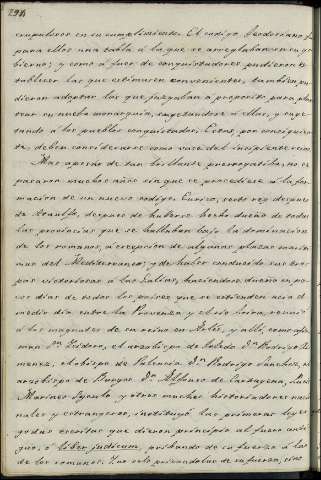 294
escrupulosos en su cumplimiento. El codigo Teodosiano fue
para ellos una tabla á la que se arreglaban en su go-
bierno; y como á fuer de conquistadores pudieron es-
tablecer las que estimaren convenientes, tambien pu-
dieron adoptar las que juzgaban á proposito para plan-
tear su nueba monarquia, sugetandose á ellas, y suge-
tando á los pueblos conquistados. Estas, por consiguien-
te, deben considerarse como raices del incipiente reino.
Mas apesar de tan brillante prerrogatiba, no se
pasaron muchos años sin que se procediese á la for-
macion de un nuevo codigo. Eurico, sesto rey despues
de Ataulfo, despues de haberse hecho dueño de todas
las provincias que se hallaban bajo la dominacion
de los romanos, á excepcion de algunas plazas mariti-
mas del Mediterraneo, y de haber conducido sus tro-
pas victoriosas á las Galias, haciendose dueño en po-
cos dias de todos los paises que se estienden acia el
medio dia entre la Provenza y el rio Loira, reunió
á los magnates de su reino en Arles, y alli, como afir-
man Sn. Isidoro, el arzobispo de Toledo Dn. Rodrigo Xi-
menez, el obispo de Palencia Dn. Rodrigo Sanchez, el
arzobispo de Burgos Dn. Alfonso de Cartagena, Lucio
Marineo Syculo, y otros muchos historiadores nacio-
nales y estrangeros, instituyó las primeras leyes
godas escritas que dieron principio al fuero anti-
guo, ó liber judicum, pribando de su fuerza á las
de los romanos. Y no solo privandolas de su fuerza, sino